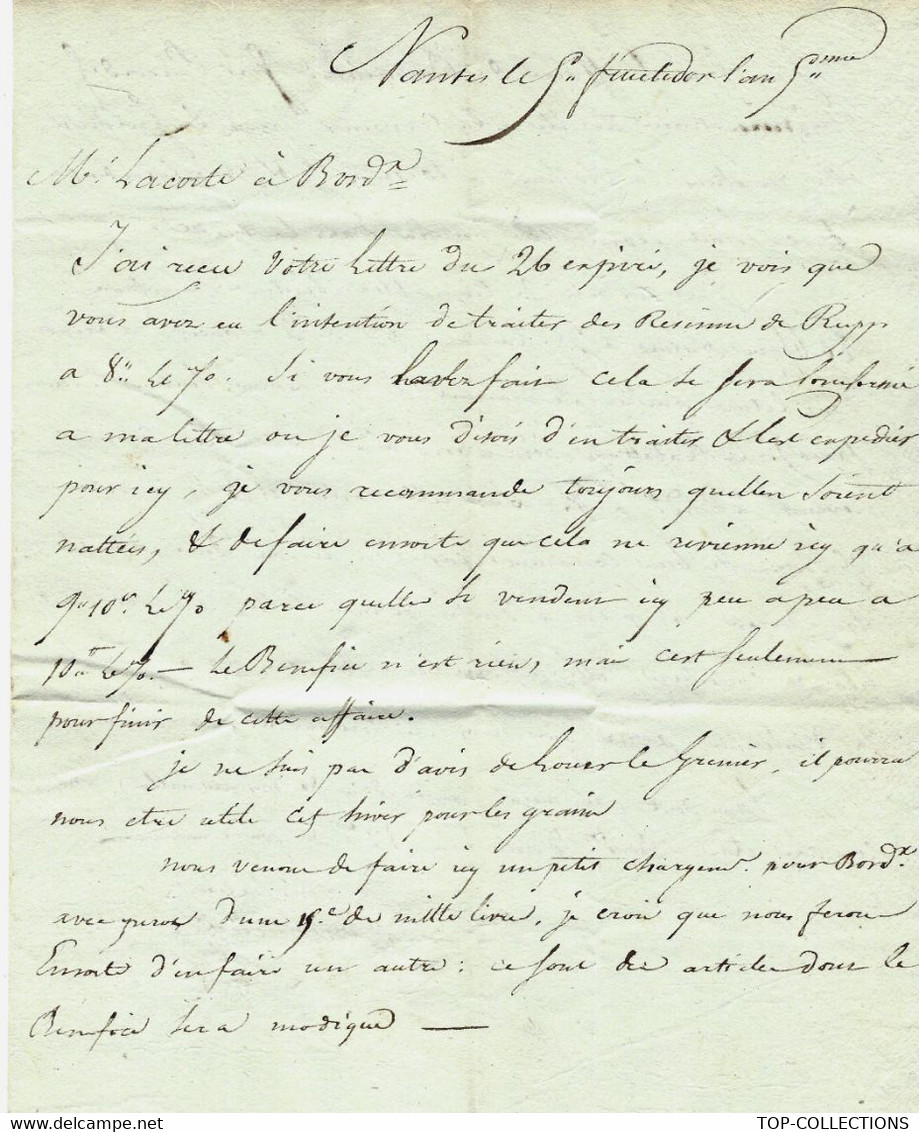 Nantes le 5" fructidor l'an 5me
Mr. Lacoste à Bordx
J'ai recu votre lettre du 26 expiré, je vois que
vous avez eu l'intention de traiter des Resinne de
a 8" le %. Si vous lavez fait cela se sera
a ma lettre ou je vous disois d'en traiter & les expedier
pour icy, je vous recommande toujours quelles soient
nattées, & de faire ensorte que cela ne revienne icy qu'a
9" 10s. le % parce quelle se vendent icy peu a peu a
10tt le %. — Le Benefice n'est rien, mai c'est seulement
pour finir de cette affaire.
je ne suis pas d'avis de louer le Grenier, il pourra
nous etre utile cet hiver pour les grains
nous venons de faire icy un petit chargemt. pour Bordx.
avec d'une 15e de mille livre, je croi que nous feron
Ensorte d'en faire un autre : ce sont des articles dont le
Benefice sera modique —
TOP-COLLECTIONS